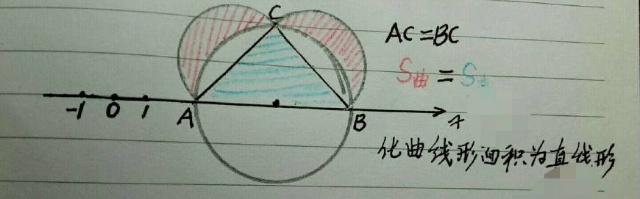 C
AC=BC
S曲=S直
-1 0 1 A B x
化曲线形面积为直线形